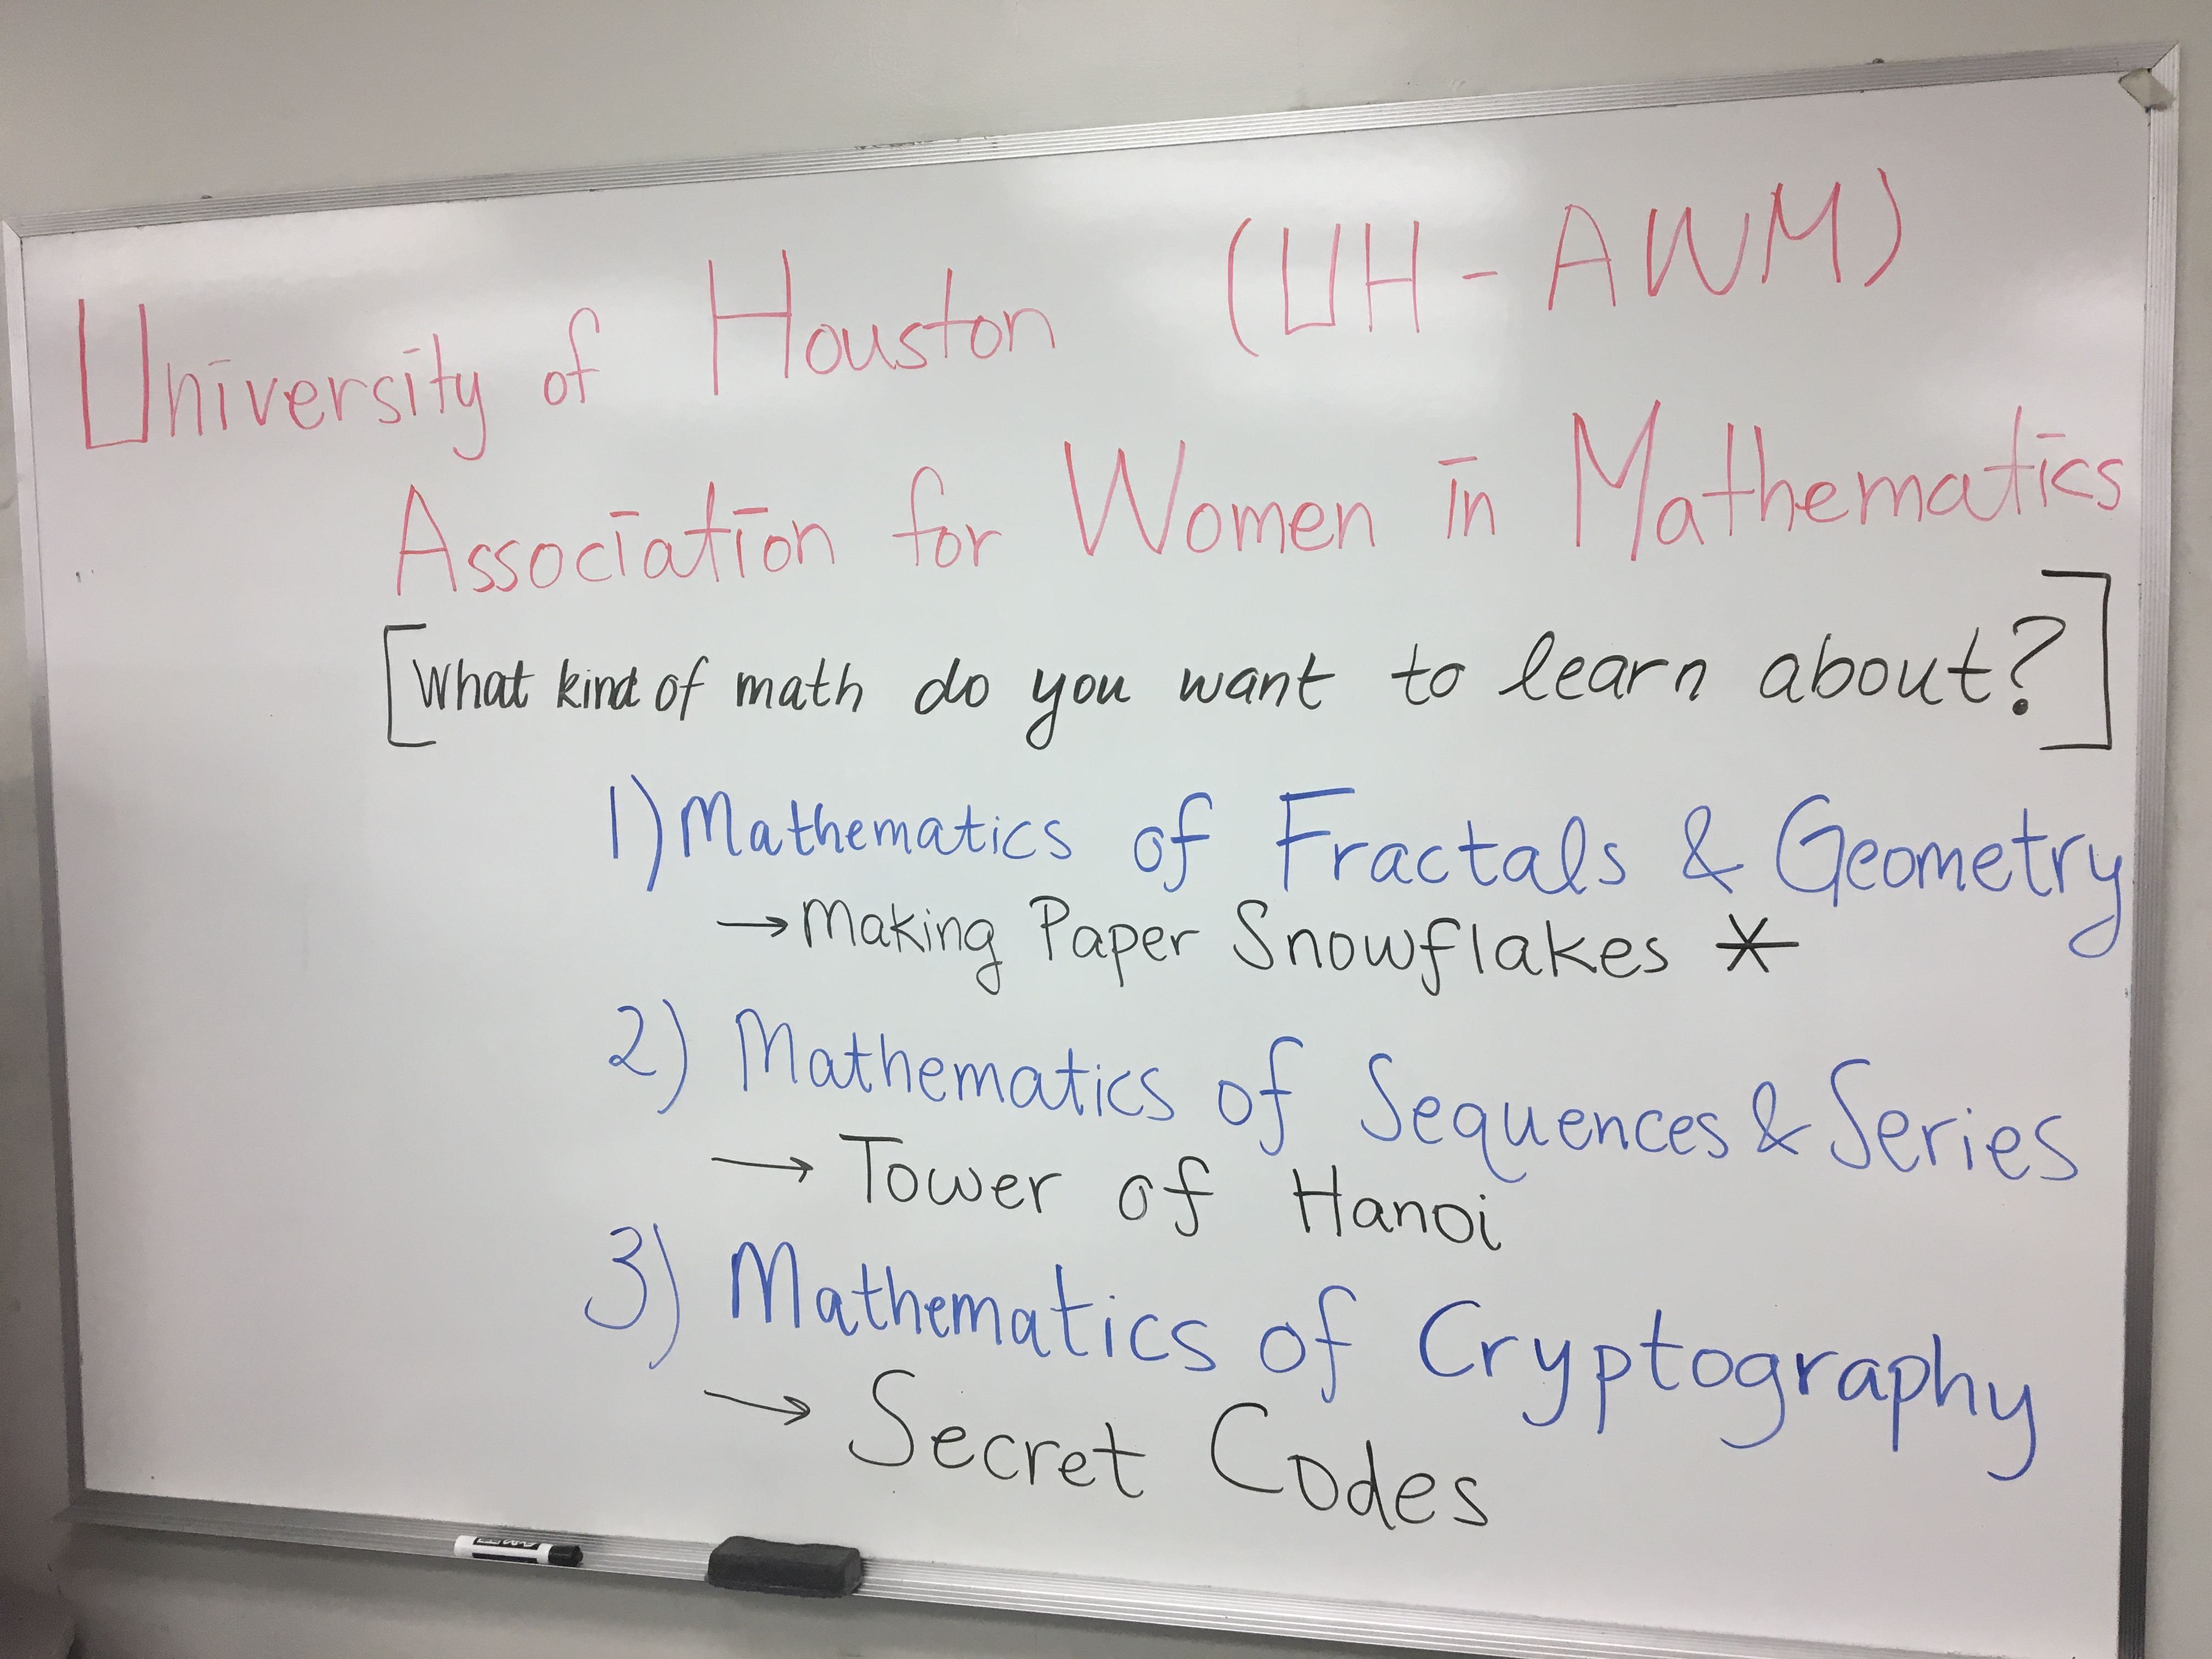 University of Houston (UH-AWM)
Association for Women in Mathematics
[What kind of math do you want to learn about?]
1) Mathematics of Fractals & Geometry
→ Making Paper Snowflakes *
2) Mathematics of Sequences & Series
→ Tower of Hanoi
3) Mathematics of Cryptography
→ Secret Codes